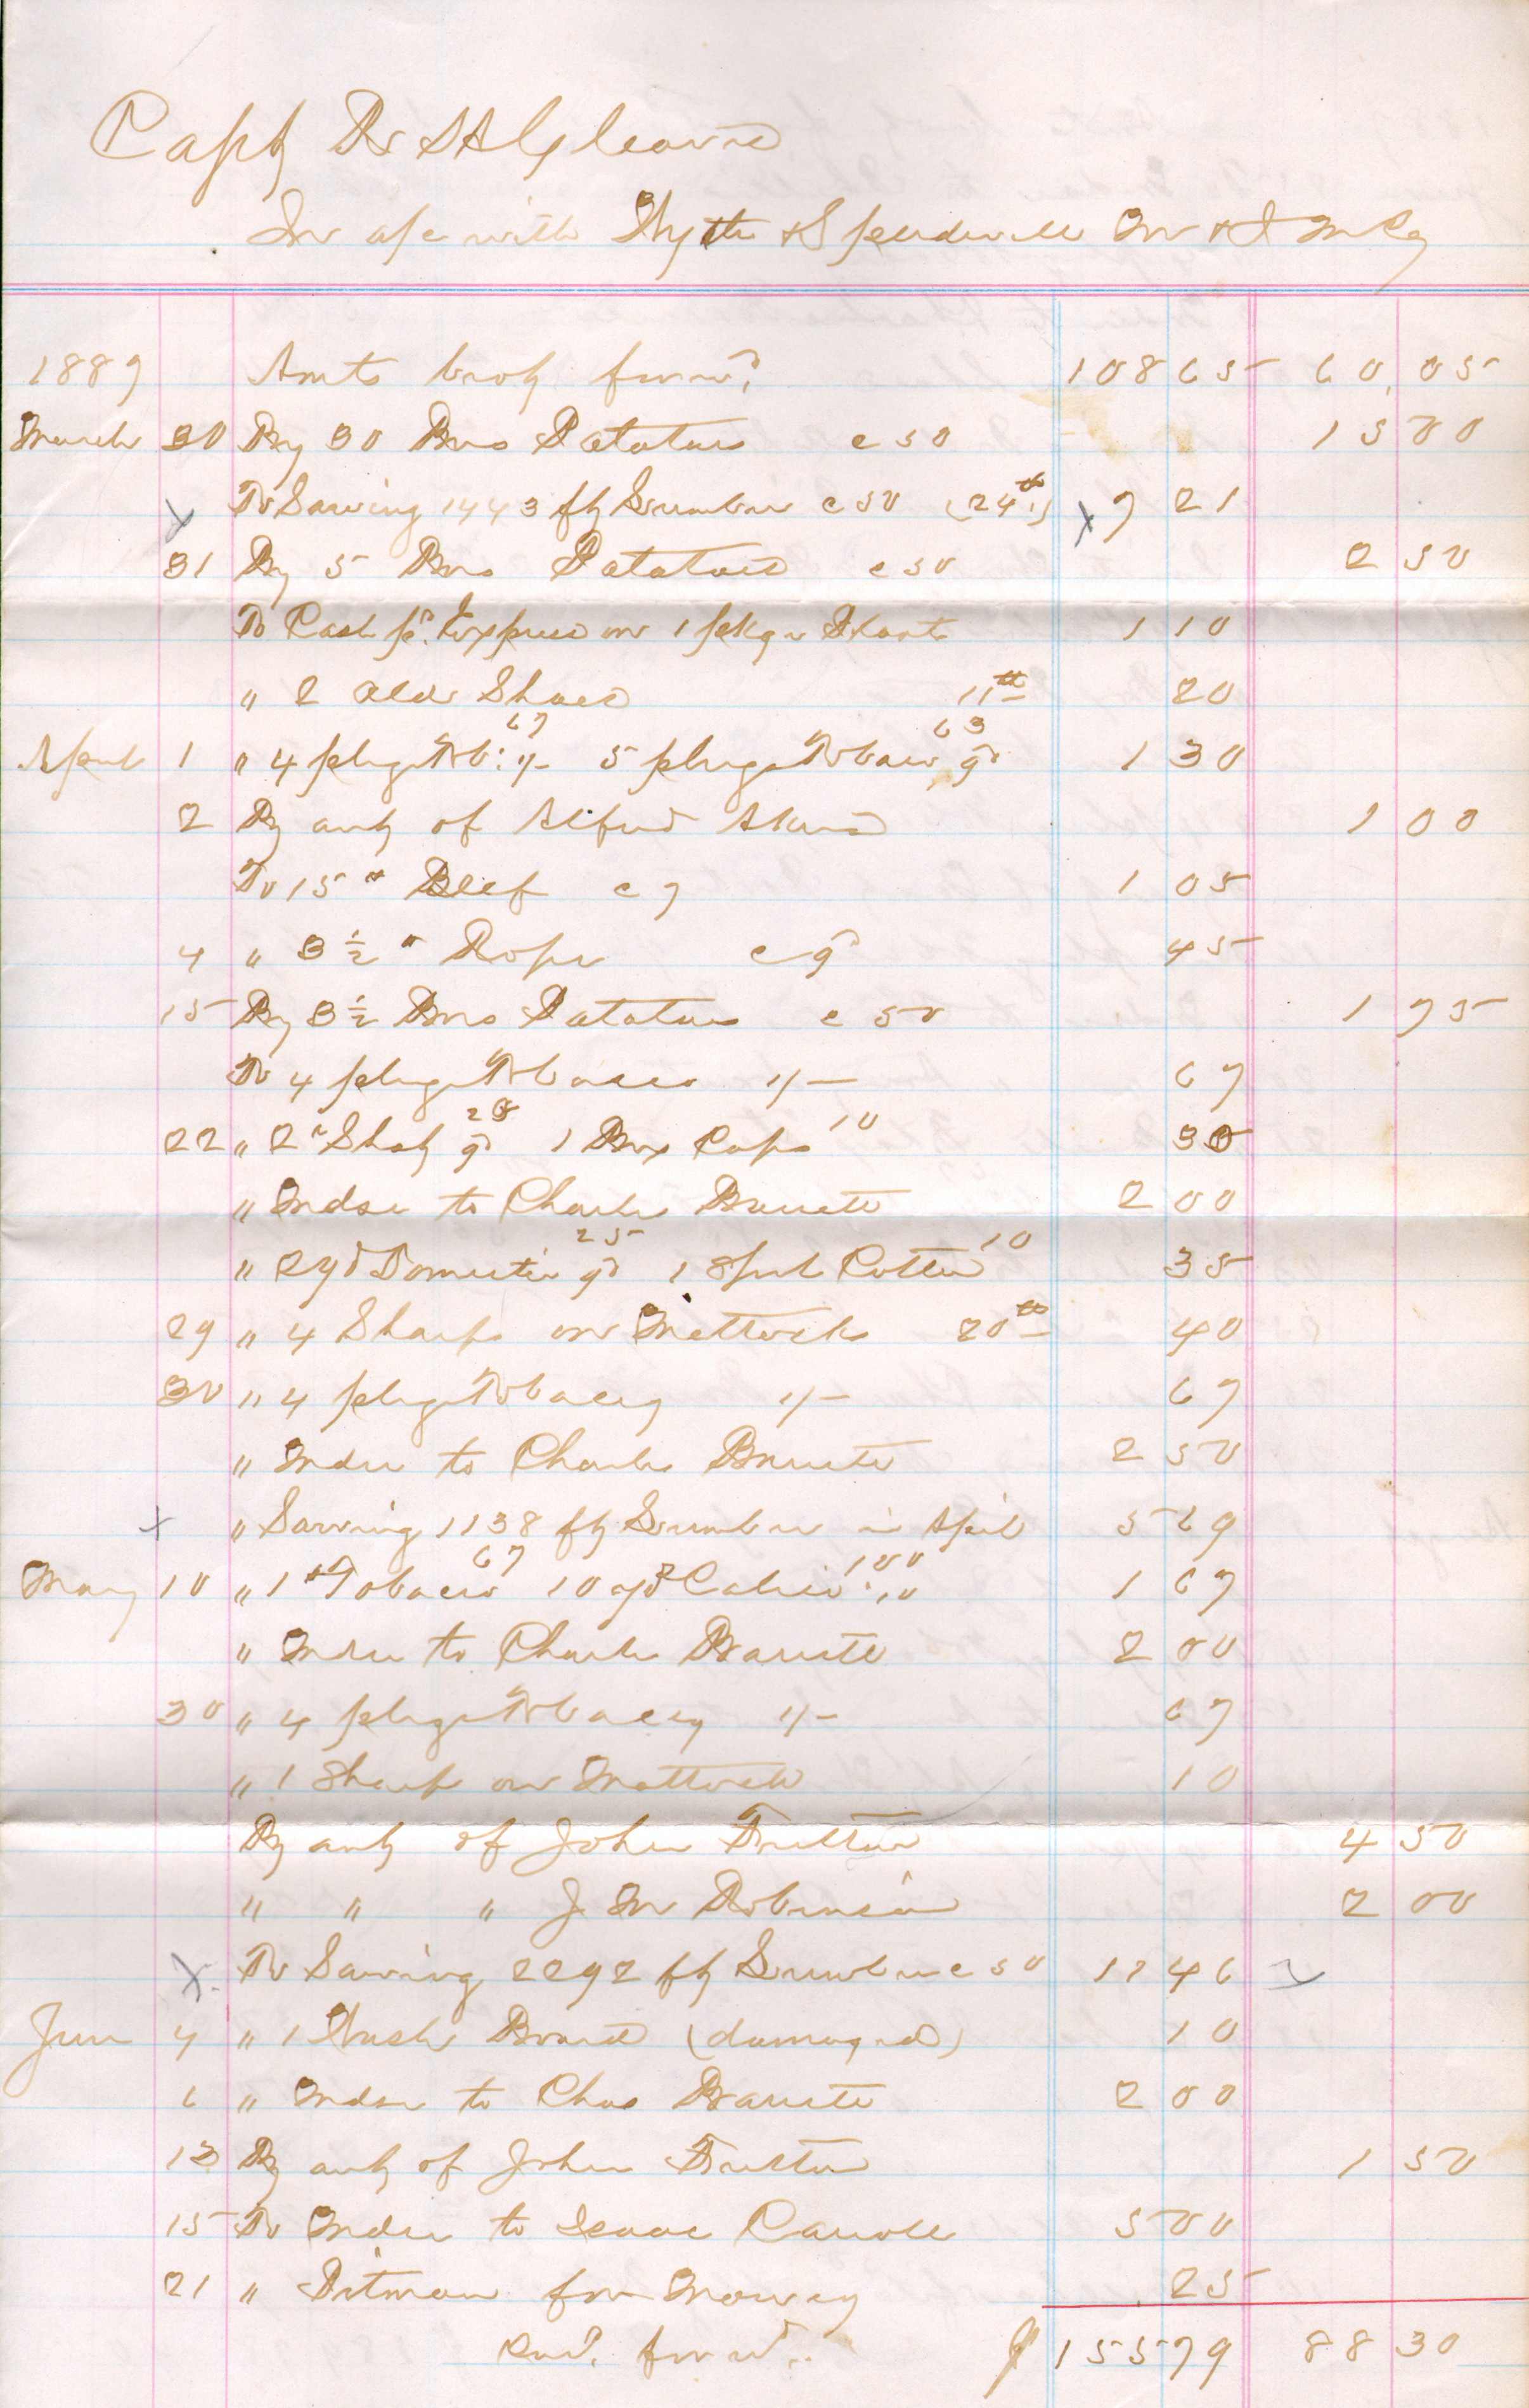 Capt R S H Gleaves
In a/c with Wyeth & Spendwell M & I M Co
1889 Amts brot forwd 108 65 60.05
March 30 By 30 Bus Potatoes c 50 15 00
To Sawing 1443 ft Lumber c 50 (24th) 7 21
31 By 5 Bus Potatoes c 50 2 50
To Cash pd Express on 1 pkge Plants 1 10
" 2 Old Shoes 11th 20
April 1 " 4 plugs Tob: 1/- 67 5 plugs Tobaco 63 1 30
2 By amt of Alfred Akers 1 00
To 15 # Beef c 7 1 05
4 " 3 1/2 # Rope 45
15 By 3 1/2 Bus Potatoes c 50 1 75
To 4 plugs Tobacco 1/- 67
22 " 2 # Shot 25 1 Box Caps 10 35
" Mdse to Charles Barrett 2 00
" 2 yds Domestic 25 1 Spool Cotton 10 35
29 " 4 Sharps on Mattock 20th 40
30 " 4 plugs Tobacco 1/- 67
" Mdse to Charles Barrett 2 50
" Sawing 1138 ft Lumber in April 5 69
May 10 " 1 # Tobacco 67 10 yds Calico 100 1 67
" Mdse to Charles Barrett 2 00
30 " 4 plugs Tobacco 1/- 67
" 1 Sharp on Mattock 10
By amt of John 4 50
" " " J M Robinson 2 00
To Sawing 2292 ft Lumber c 50 11 46
June 4 " 1 Wash Board (damaged) 10
6 " Mdse to Chas Barrett 2 00
13 By amt of John 1 50
15 To Mdse to Isaac Carroll 5 00
21 " Pitman for Mower 25
Card. forwd. $ 155 79 88 30